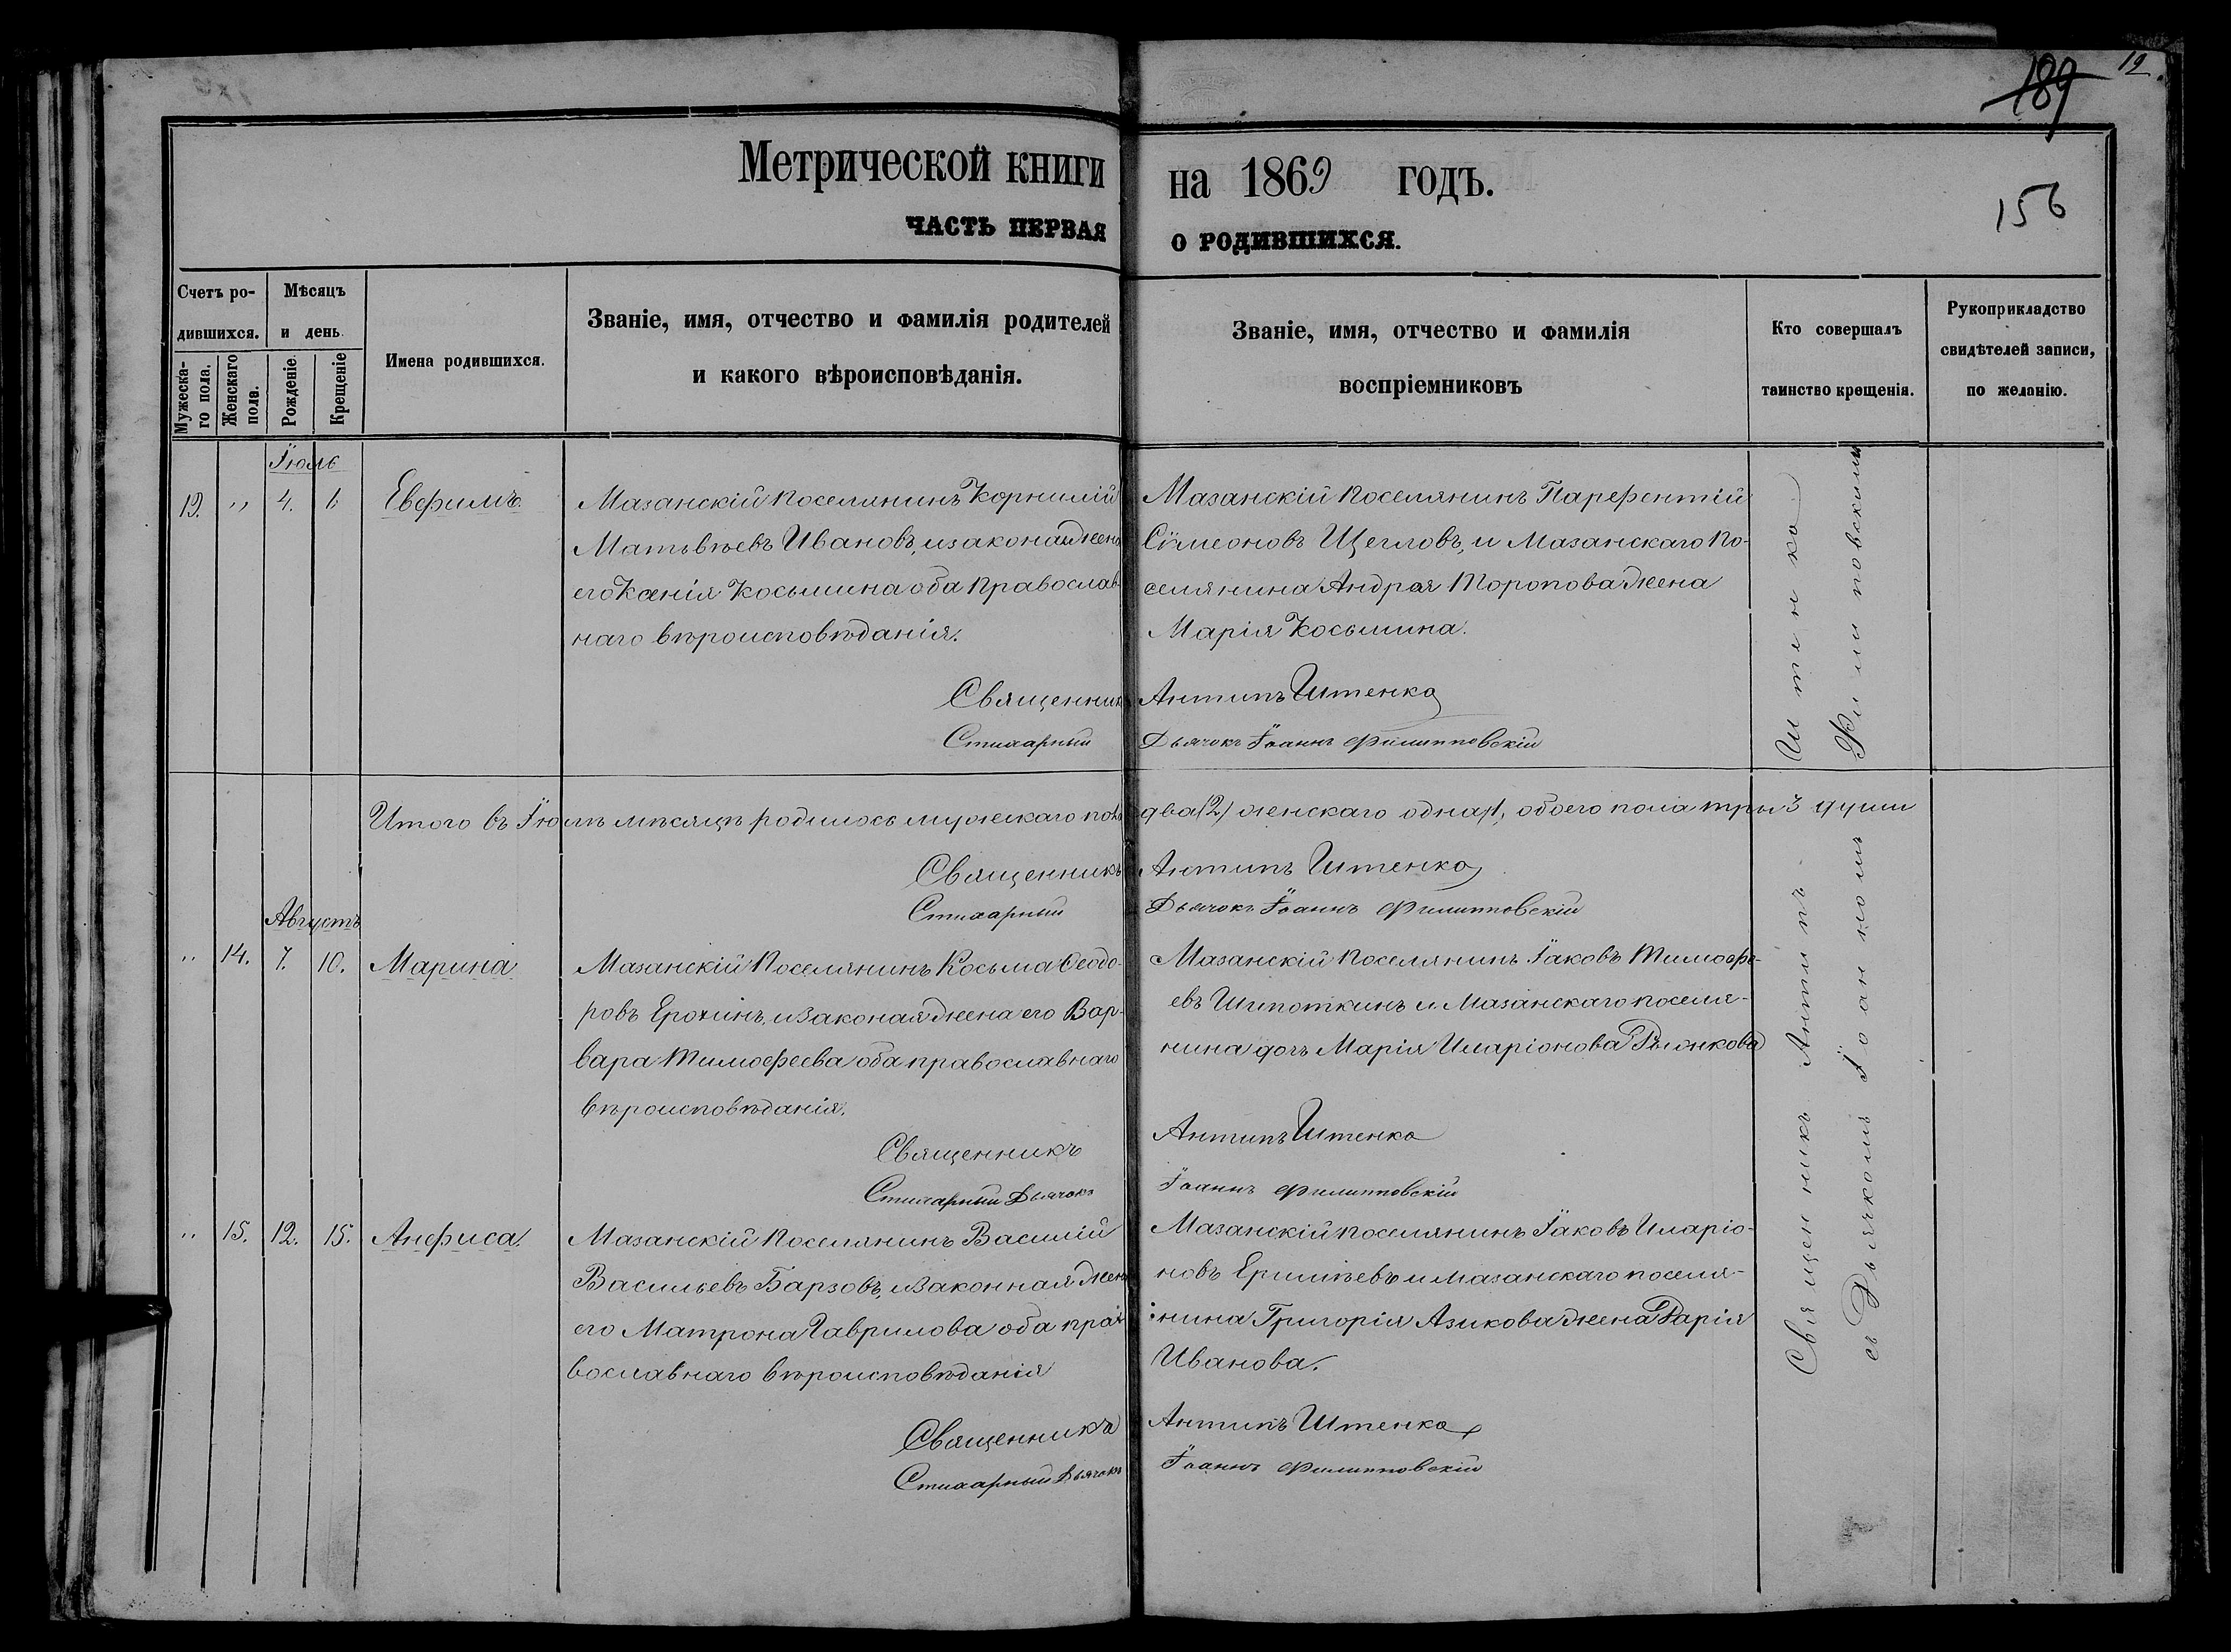 189
12
Метрической книги на 1869 годъ.
156
ЧАСТЬ ПЕРВАЯ О РОДИВШИХСЯ.
Счетъ ро-
дившихся.
Мужеска-
го пола.
Женскаго
пола.
Мѣсяцъ
и день.
Рожденіе.
Крещеніе
Имена родившихся.
Званіе, имя, отчество и фамилія родителей
и какого вѣроисповѣданія.
Званіе, имя, отчество и фамилія
воспріемниковъ
Кто совершалъ
таинство крещенія.
Рукоприкладство
свидѣтелей записи,
по желанію.
Іюль
19. " 4. 6 Евфимъ.
Мазанскій поселянинъ Корнилій
Матвѣевъ Ивановъ, и законая жена
его Ксенія Косьмина оба Православ
наго вѣроисповѣданія.
Мазанскій поселянинъ Парфентій
Сімеоновъ Щегловъ, и Мазанскаго по-
селянина Андрея Торопова жена
Марія Косьмина.
Священникъ Антипъ Штенко
Стихарный Дьячокъ Іоаннъ Филипповскій
Итого въ Іюлѣ мѣсяцѣ родилось мужескаго пола два (2) женскаго одна 1, обоего пола три 3 души
Священникъ Антипъ Штенко
Стихарный Дьячокъ Іоаннъ Филипповскій
Августъ
" 14. 7. 10. Марина
Мазанскій поселянинъ Косьма Ѳеодо-
ровъ Ерохинъ, и законая жена его Вар-
вара Тимофеева оба православнаго
вѣроисповѣданія.
Мазанскій поселянинъ Іаковъ Тимофе-
евъ Шипоткинъ и Мазанскаго поселя-
нина дочь Марія Иларіонова
Священникъ Антипъ Штенко
Стихарный Дьячокъ Іоаннъ Филипповскій
" 15. 12. 15. Анфиса.
Мазанскій поселянинъ Василій
Васильевъ Барзовъ, и законная жена
его Матрона Гаврилова оба пра-
вославнаго вѣроисповѣданія
Мазанскій поселянинъ Іаковъ Иларіо-
новъ и Мазанскаго поселя-
нина Григорія Азикова жена Дарія
Иванова.
Священникъ Антипъ Штенко
Стихарный Дьячокъ Іоаннъ Филипповскій
Священникъ Антипъ Штенко
съ Дьячкомъ Іоанномъ Филиповскимъ